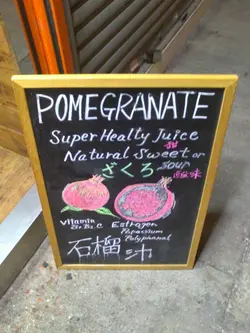 POMEGRANATE
Super Healty Juice
Natural Sweet or
甜
ざくろ sour
酸味
Vitamin Estrogen
B1 B2 C Potassium
Polyphenol
石榴汁